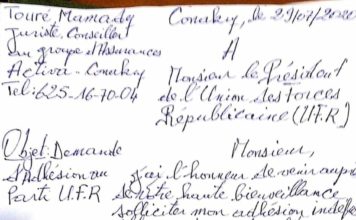 Touré, Mamady
Juriste, Conseiller
au groupe d'Assurances
Activa - Conakry
Tel: 625-16-70-04
Conakry, le 29/07/2020
A
Monsieur le Président
de l'Union des forces
Républicaine (U.F.R)
Objet: Demande
d'Adhésion au
Parti U.F.R
Monsieur,
j'ai l'honneur de venir auprès
de votre haute bienveillance
solliciter mon adhésion